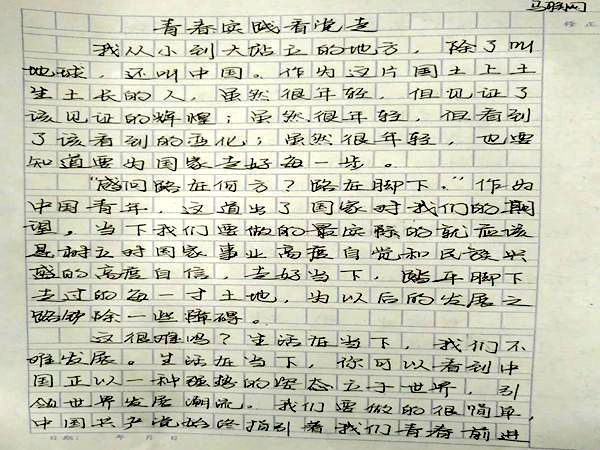 青春实践看党走
我从小到大站立的地方，除了叫
地球，还叫中国。作为这片国土上土
生土长的人，虽然很年轻，但见证了
该见证的辉煌；虽然很年轻，但看到
了该看到的变化；虽然很年轻，也要
知道要为国家走好每一步。
“感问路在何方？路在脚下。”作为
中国青年，这道出了国家对我们的期
望。当下我们要做的最实际的就应该
是树立对国家事业高度自觉和民族兴
盛的高度自信，走好当下，踏在脚下
走过的每一寸土地，为以后的发展之
路铲除一些障碍。
这很难吗？生活在当下，我们不
难发展。生活在当下，你可以看到中
国正以一种强势的姿态立于世界，引
领世界发展潮流。我们要做的很简单，
中国共产党始终指引着我们青春前进
日期： 年 月 日